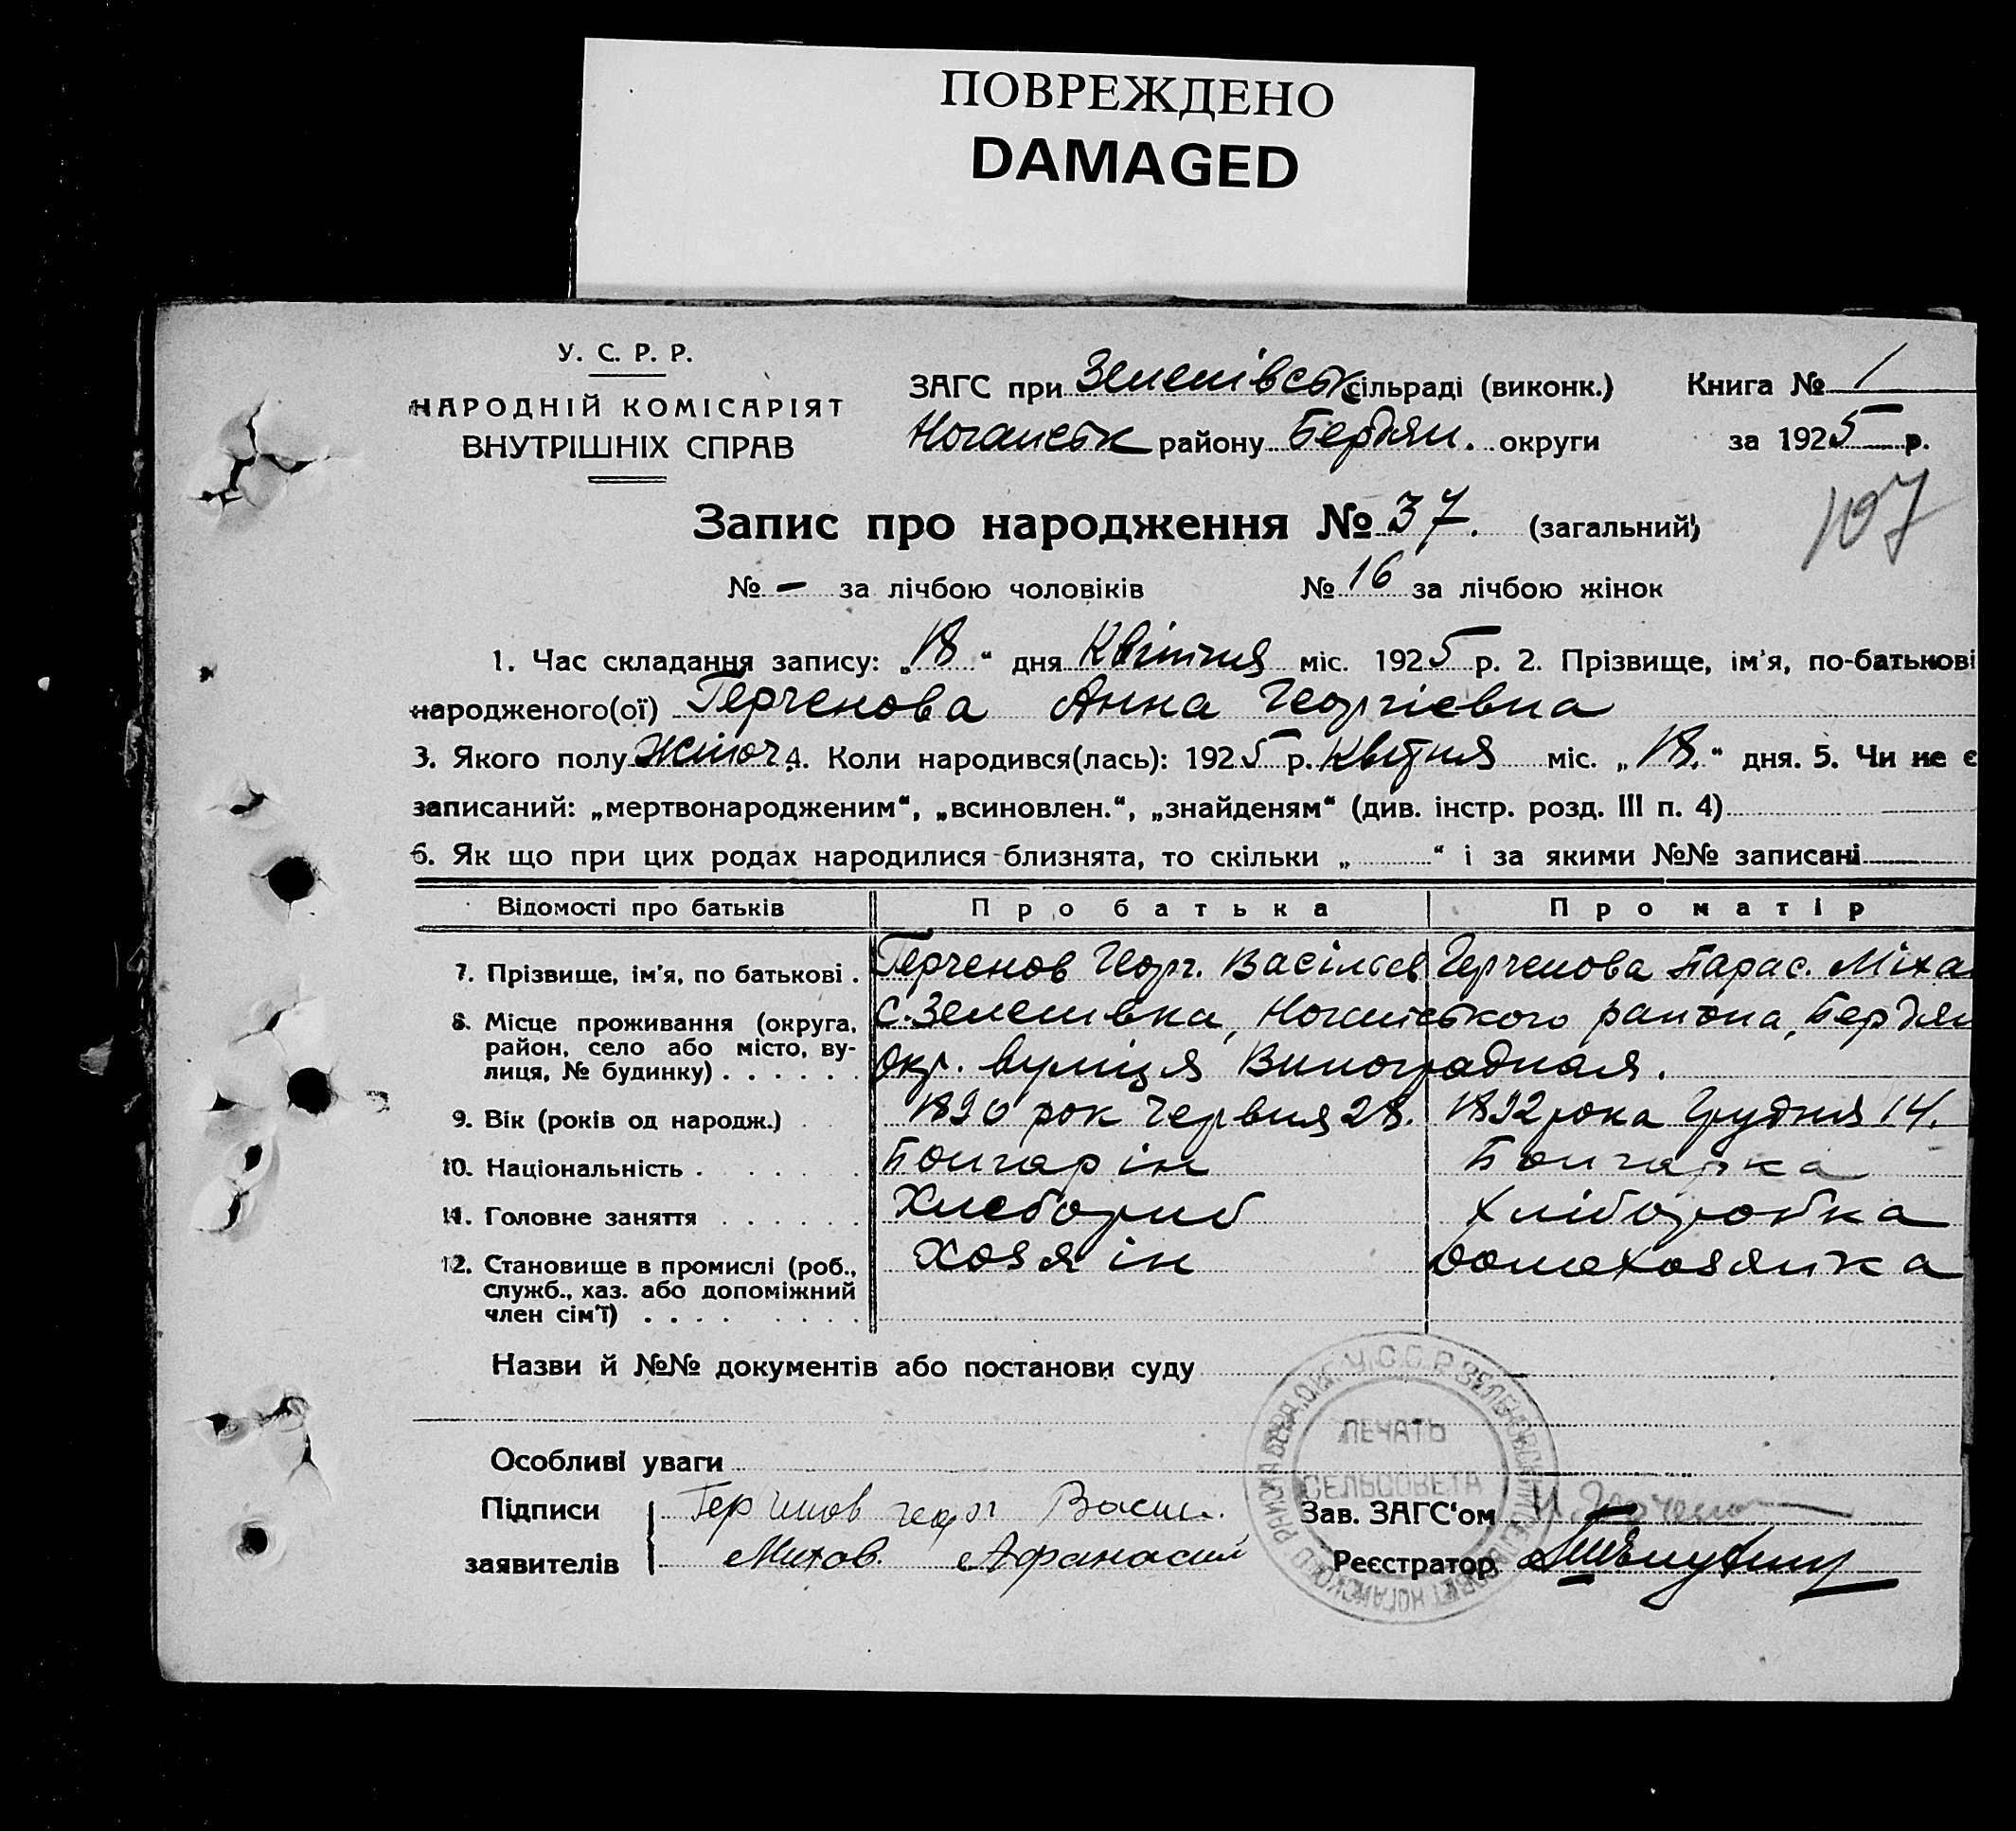 ПОВРЕЖДЕНО
DAMAGED
У. С. Р. Р.
НАРОДНІЙ КОМІСАРІЯТ
ВНУТРІШНІХ СПРАВ
ЗАГС при Зеленівськ сільраді (виконк.) Книга № 1
Ногайськ району Бердян. округи за 1925 р.
107
Запис про народження № 37. (загальний)
№ – за лічбою чоловіків № 16 за лічбою жінок
1. Час складання запису: „18“ дня Квітния міс. 1925 р. 2. Прізвище, ім'я, по-батькові
народженого(ої) Герченова Анна Георгієвна
3. Якого полу Жіноч 4. Коли народився(лась): 1925 р. Квітня міс. „18.“ дня. 5. Чи не є
записаний: „мертвонародженим“, „всиновлен.“, „знайденям“ (див. інстр. розд. III п. 4)
6. Як що при цих родах народилися близнята, то скільки „ “ і за якими №№ записані
Відомості про батьків Про батька Про матір
7. Прізвище, ім'я, по батькові . Герченов Георг. Васільев Герченова Парас. Міха
8. Місце проживання (округа, район, село або місто, вулиця, № будинку) . . . . . . С. Зеленивка, Ногайського района, Бердян
окр. вуліця Виноградная.
9. Вік (років од народж.) 1890 рок Червня 28. 1892 рока Грудня 14.
10. Національність . Болгарін Болгарка
11. Головне заняття . . . . . . Хлебороб Хліборобка
12. Становище в промислі (роб., Хозяін домохозяйка
служб., хаз. або допоміжний
член сім'ї) . . . .
Назви й №№ документів або постанови суду
Особливі уваги
Підписи Герчинов георг Васил. Зав. ЗАГС'ом И. Герчено
заявителів Митов. Афанасий Реєстратор
У.С.С.Р.
ПЕЧАТЬ
СЕЛЬСОВЕТА